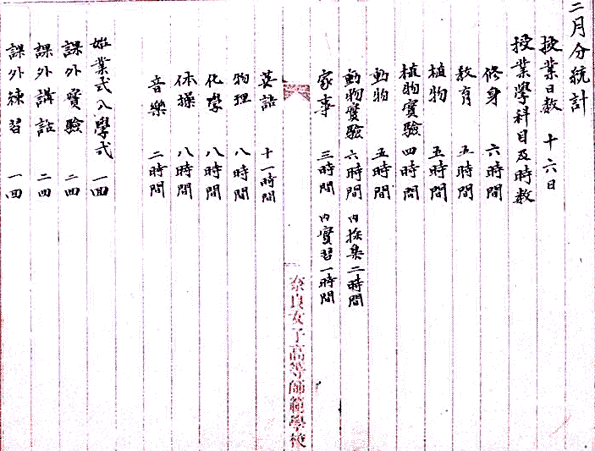 二月分統計
授業日数 十六日
授業學科目及時数
修身 六時間
教育 五時間
植物 五時間
植物實驗 四時間
動物 五時間
動物實驗 六時間 内採集二時間
家事 三時間 内實習一時間
奈良女子高等師範學校
英語 十一時間
物理 八時間
化學 八時間
体操 八時間
音樂 二時間
始業式入學式 一回
課外實驗 二回
課外講話 二回
課外練習 一回